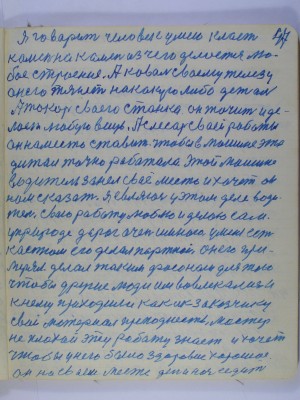 Я говарят человек умею класт
камен на камен из чего делается лю-
бое строение. А ковал своему железу
он его тянет на какую либо детал
А токар своего станка он точит и де-
лает любую вещь. А слесар своей работы
он на место ставит. чтобы в машине эта
детал точно работала. Этой машине
водитель занел своё место и хочет он
нам сказат. Я являюс у этом деле води-
тел. свою работу люблю и делаю сам.
у природе дорог очен много. умею
костюм его делал портной. он его при-
мерял делал таким фасоном для того
чтобы другие люди им вовлекалис и
к нему приходили как их заказчику
свой материал преподнест, мастер
не плохай эту работу знает и хочет
чтобы у него было здоровие хорошее.
он на своем месте сидит